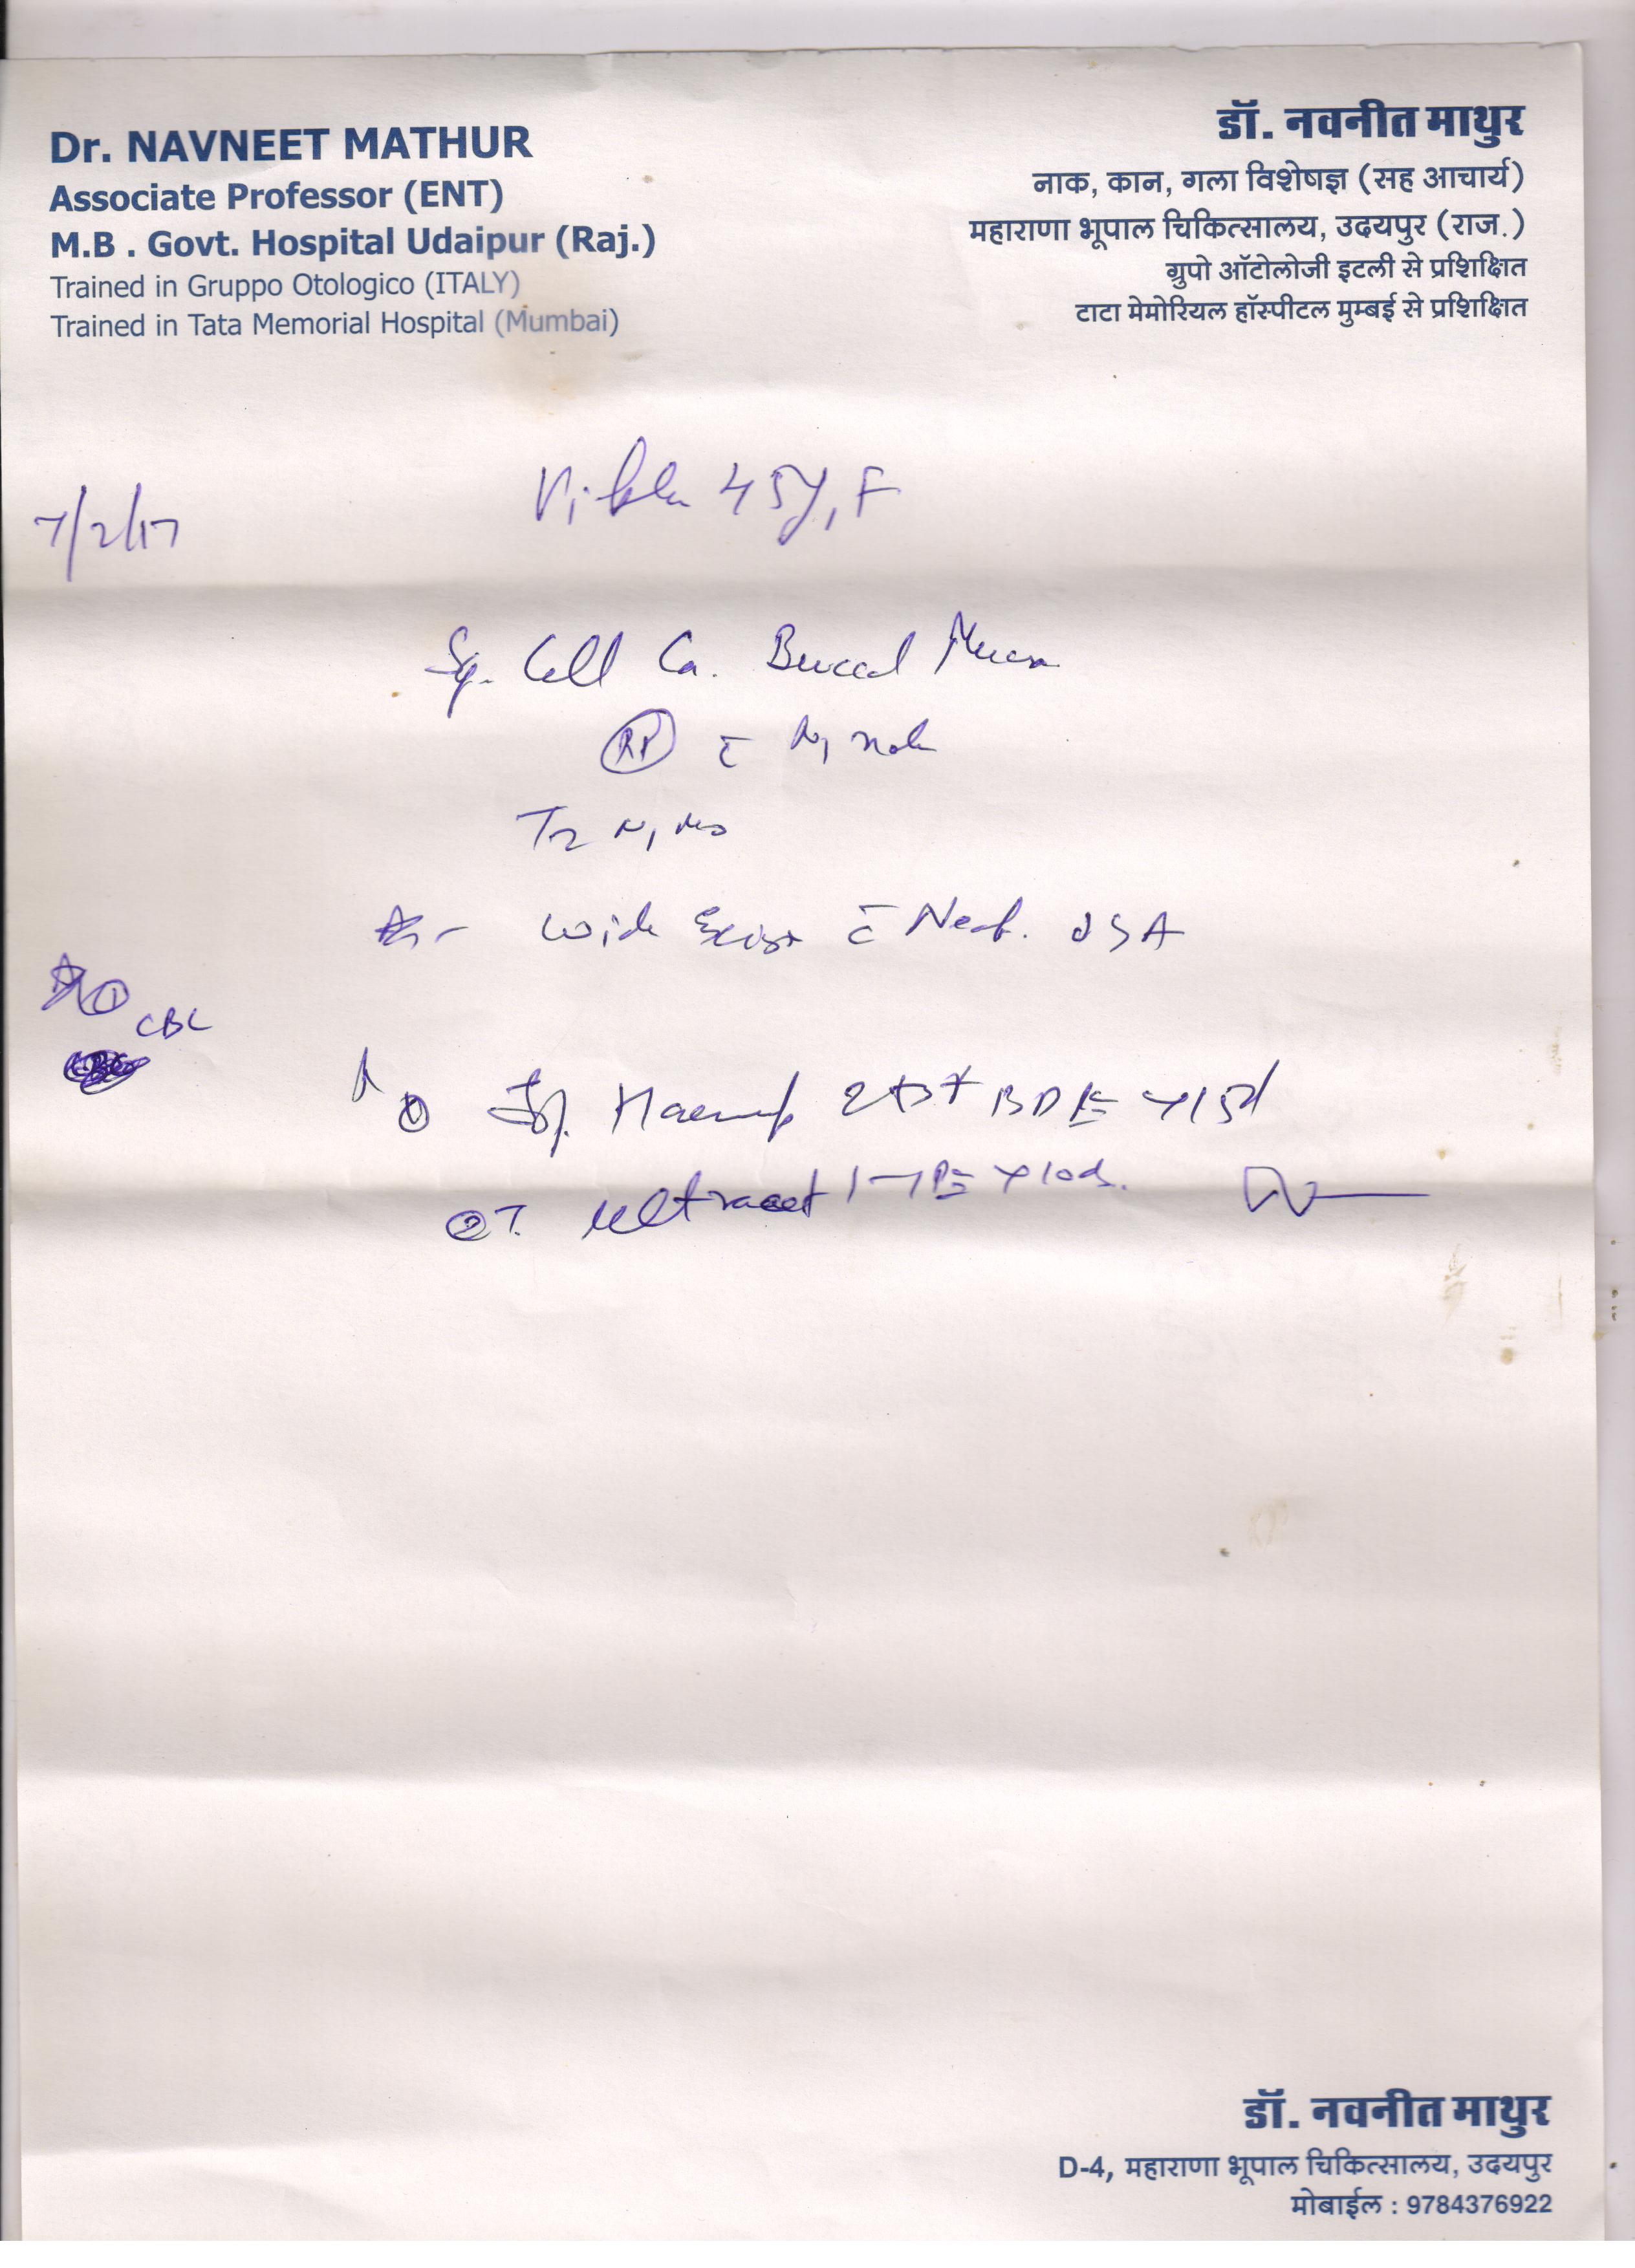 Dr. NAVNEET MATHUR
Associate Professor (ENT)
M.B . Govt. Hospital Udaipur (Raj.)
Trained in Gruppo Otologico (ITALY)
Trained in Tata Memorial Hospital (Mumbai)
डॉ. नवनीत माथुर
नाक, कान, गला विशेषज्ञ (सह आचार्य)
महाराणा भूपाल चिकित्सालय, उदयपुर (राज.)
ग्रुपो ऑटोलोजी इटली से प्रशिक्षित
टाटा मेमोरियल हॉस्पीटल मुम्बई से प्रशिक्षित
45y, F
7/2/17
Sq. Cell Ca. Buccal
c̄ N1 node
T2 N1 M0
Wide c̄
CBC
① Inj.
② T. Ultracet 1-1
डॉ. नवनीत माथुर
D-4, महाराणा भूपाल चिकित्सालय, उदयपुर
मोबाईल : 9784376922